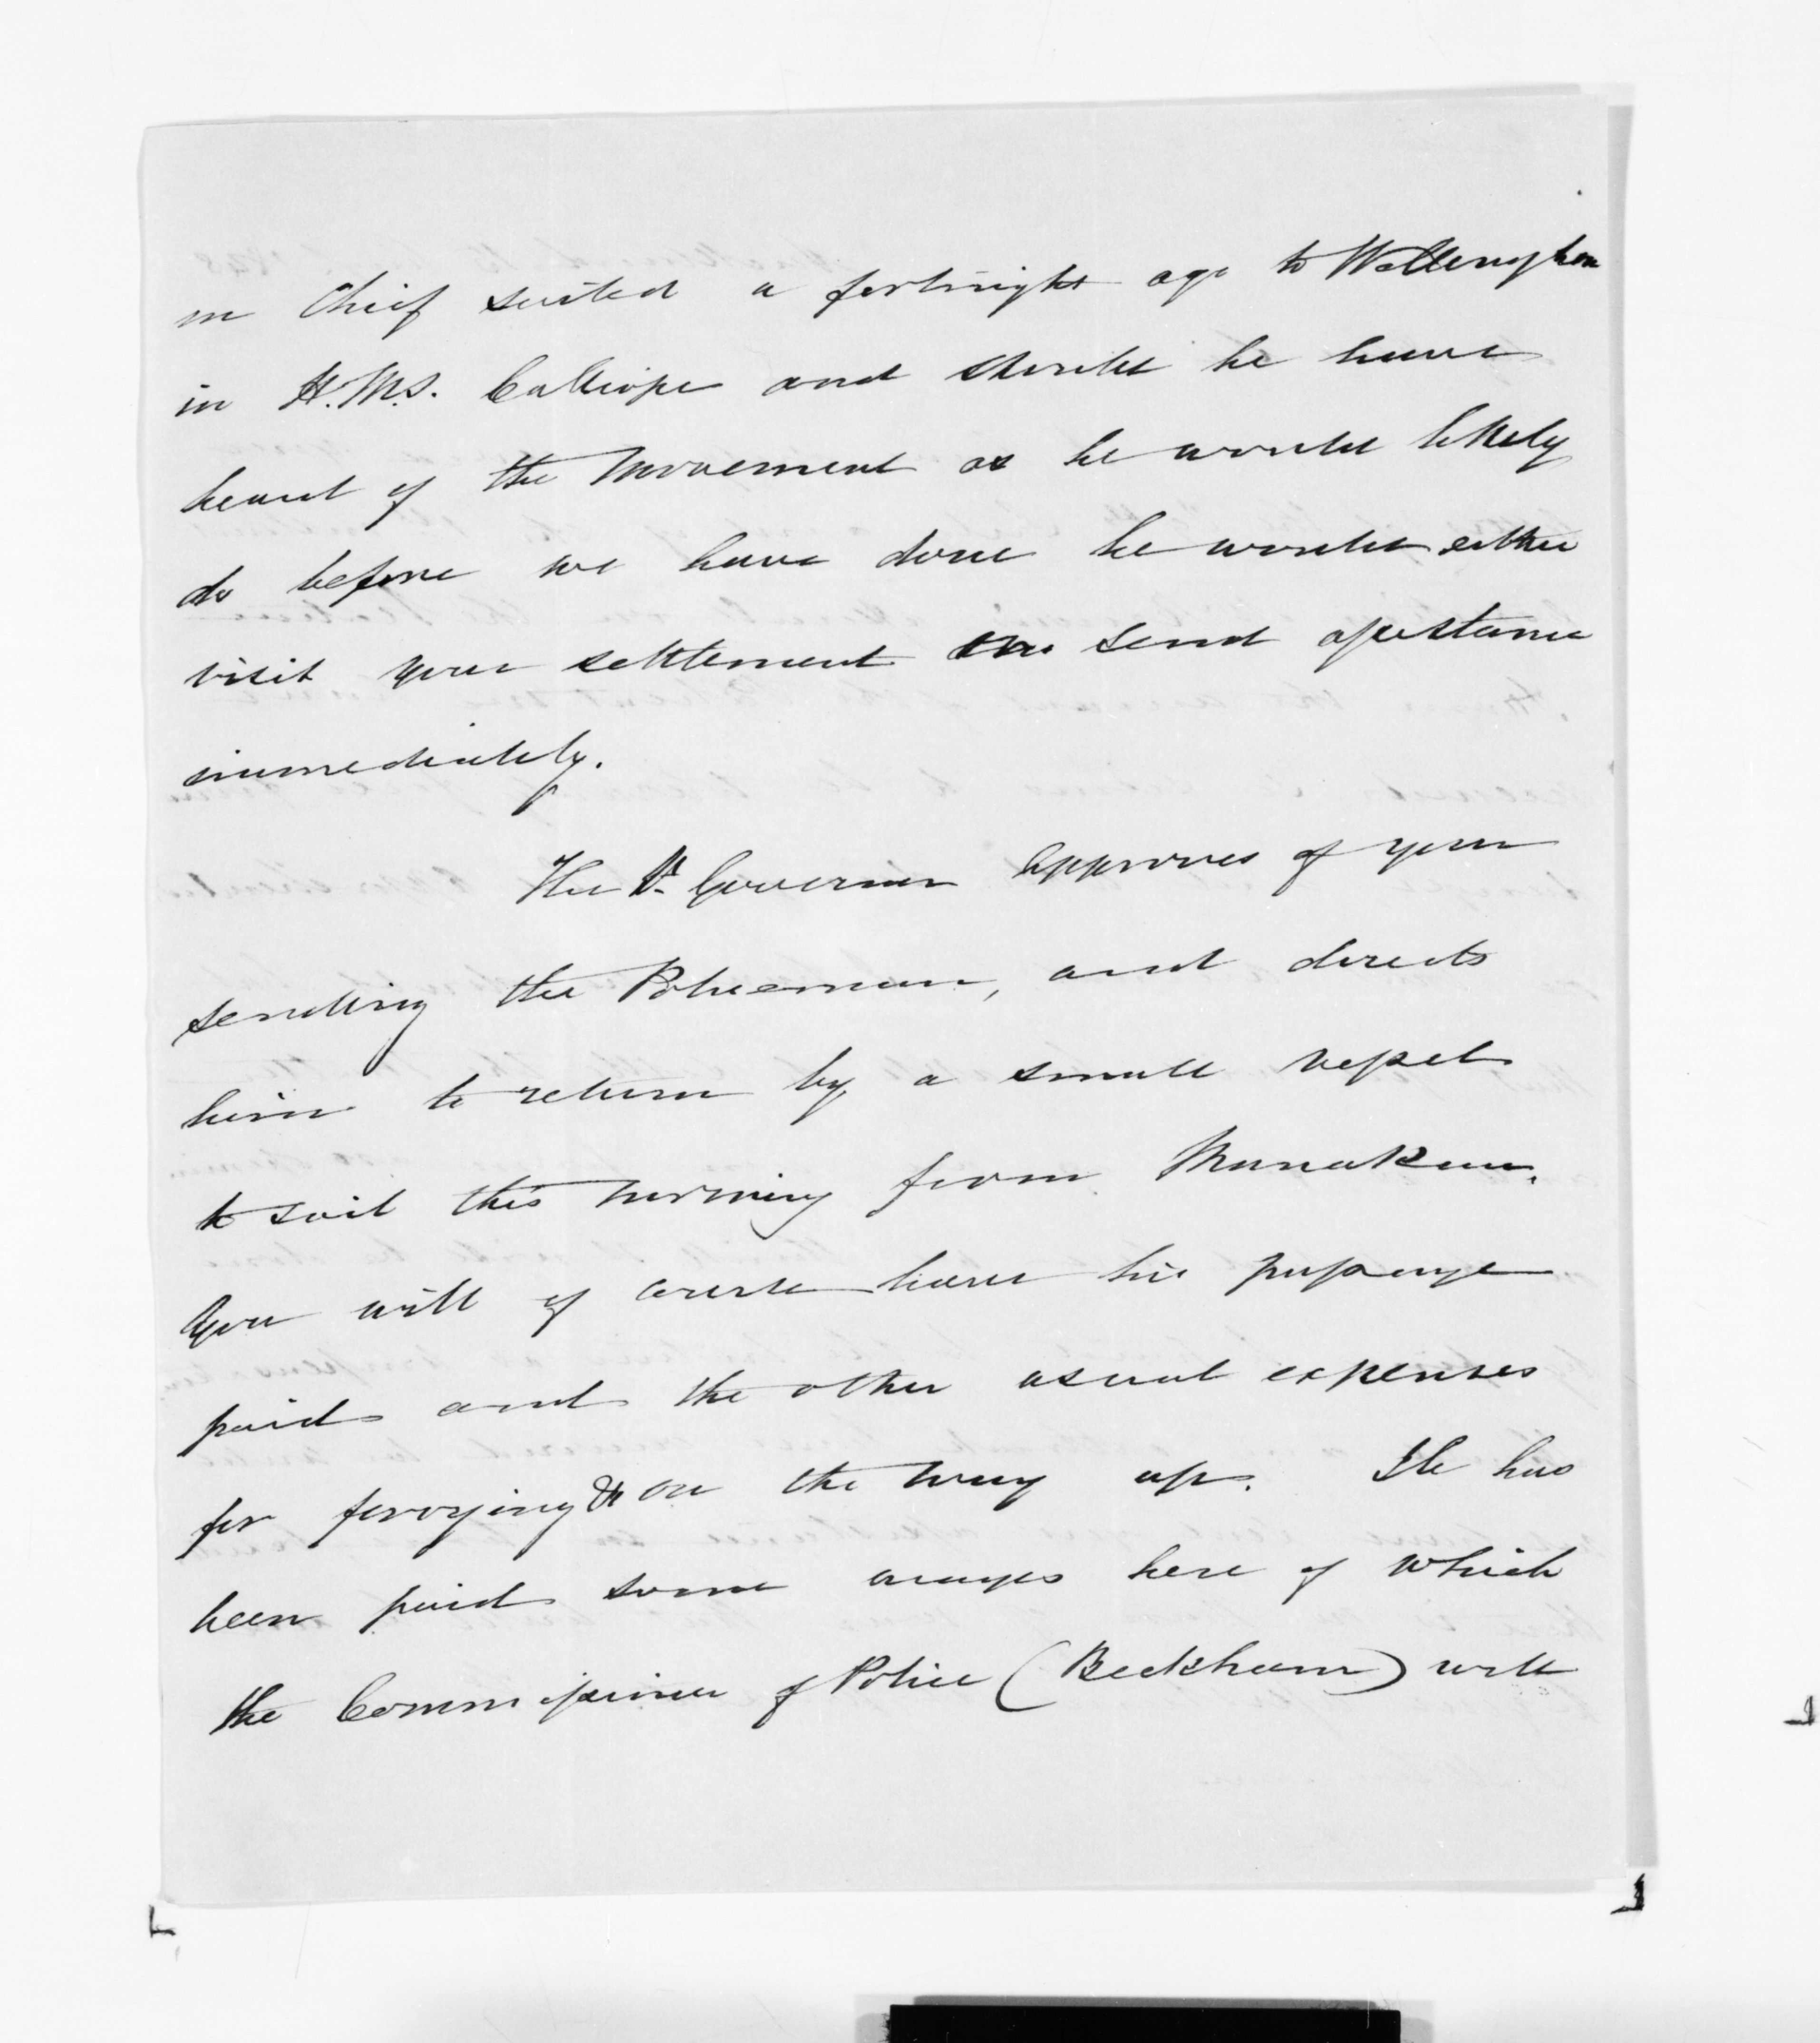 in Chief sailed a fortnight ago to Wellington
in H.M.S. Calliope and should he have
heard of the movement as he would likely
do before we have done he would either
visit your settlement or send assistance
immediately.
The Lt Governor approves of your
sending the Policeman, and directs
him to return by a small vessel
to sail this morning from Manakau.
You will of course have his passage
paid and the other usual expenses
for ferrying &c on the way up. He has
been paid some wages here of which
the Commissioner of Police (Beckham) will